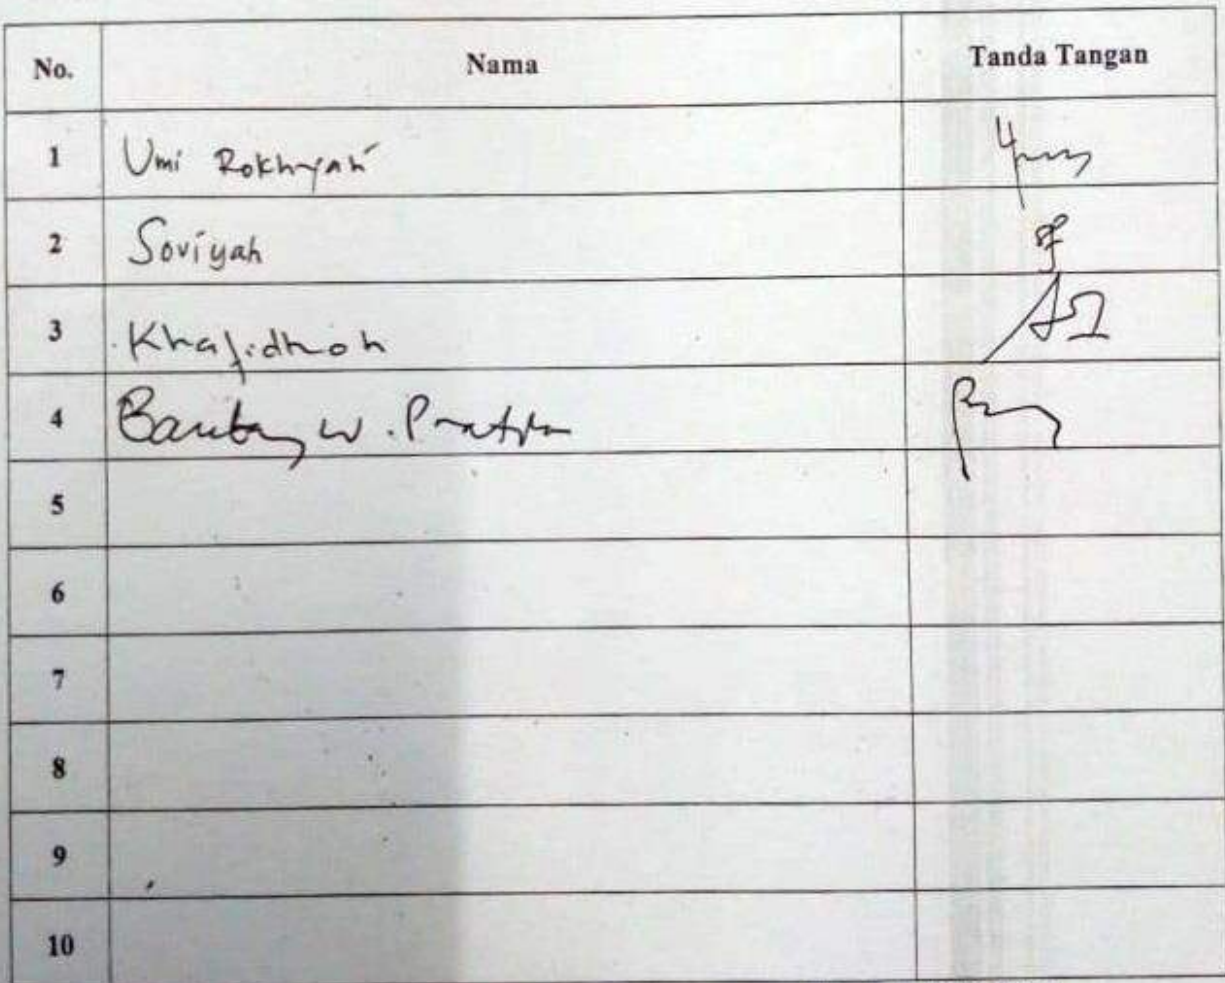 No. Nama Tanda Tangan
1 Umi Rokhyah
2 Soviyah
3 Khafidhoh
4 Bambang W. Pratama
5
6
7
8
9
10